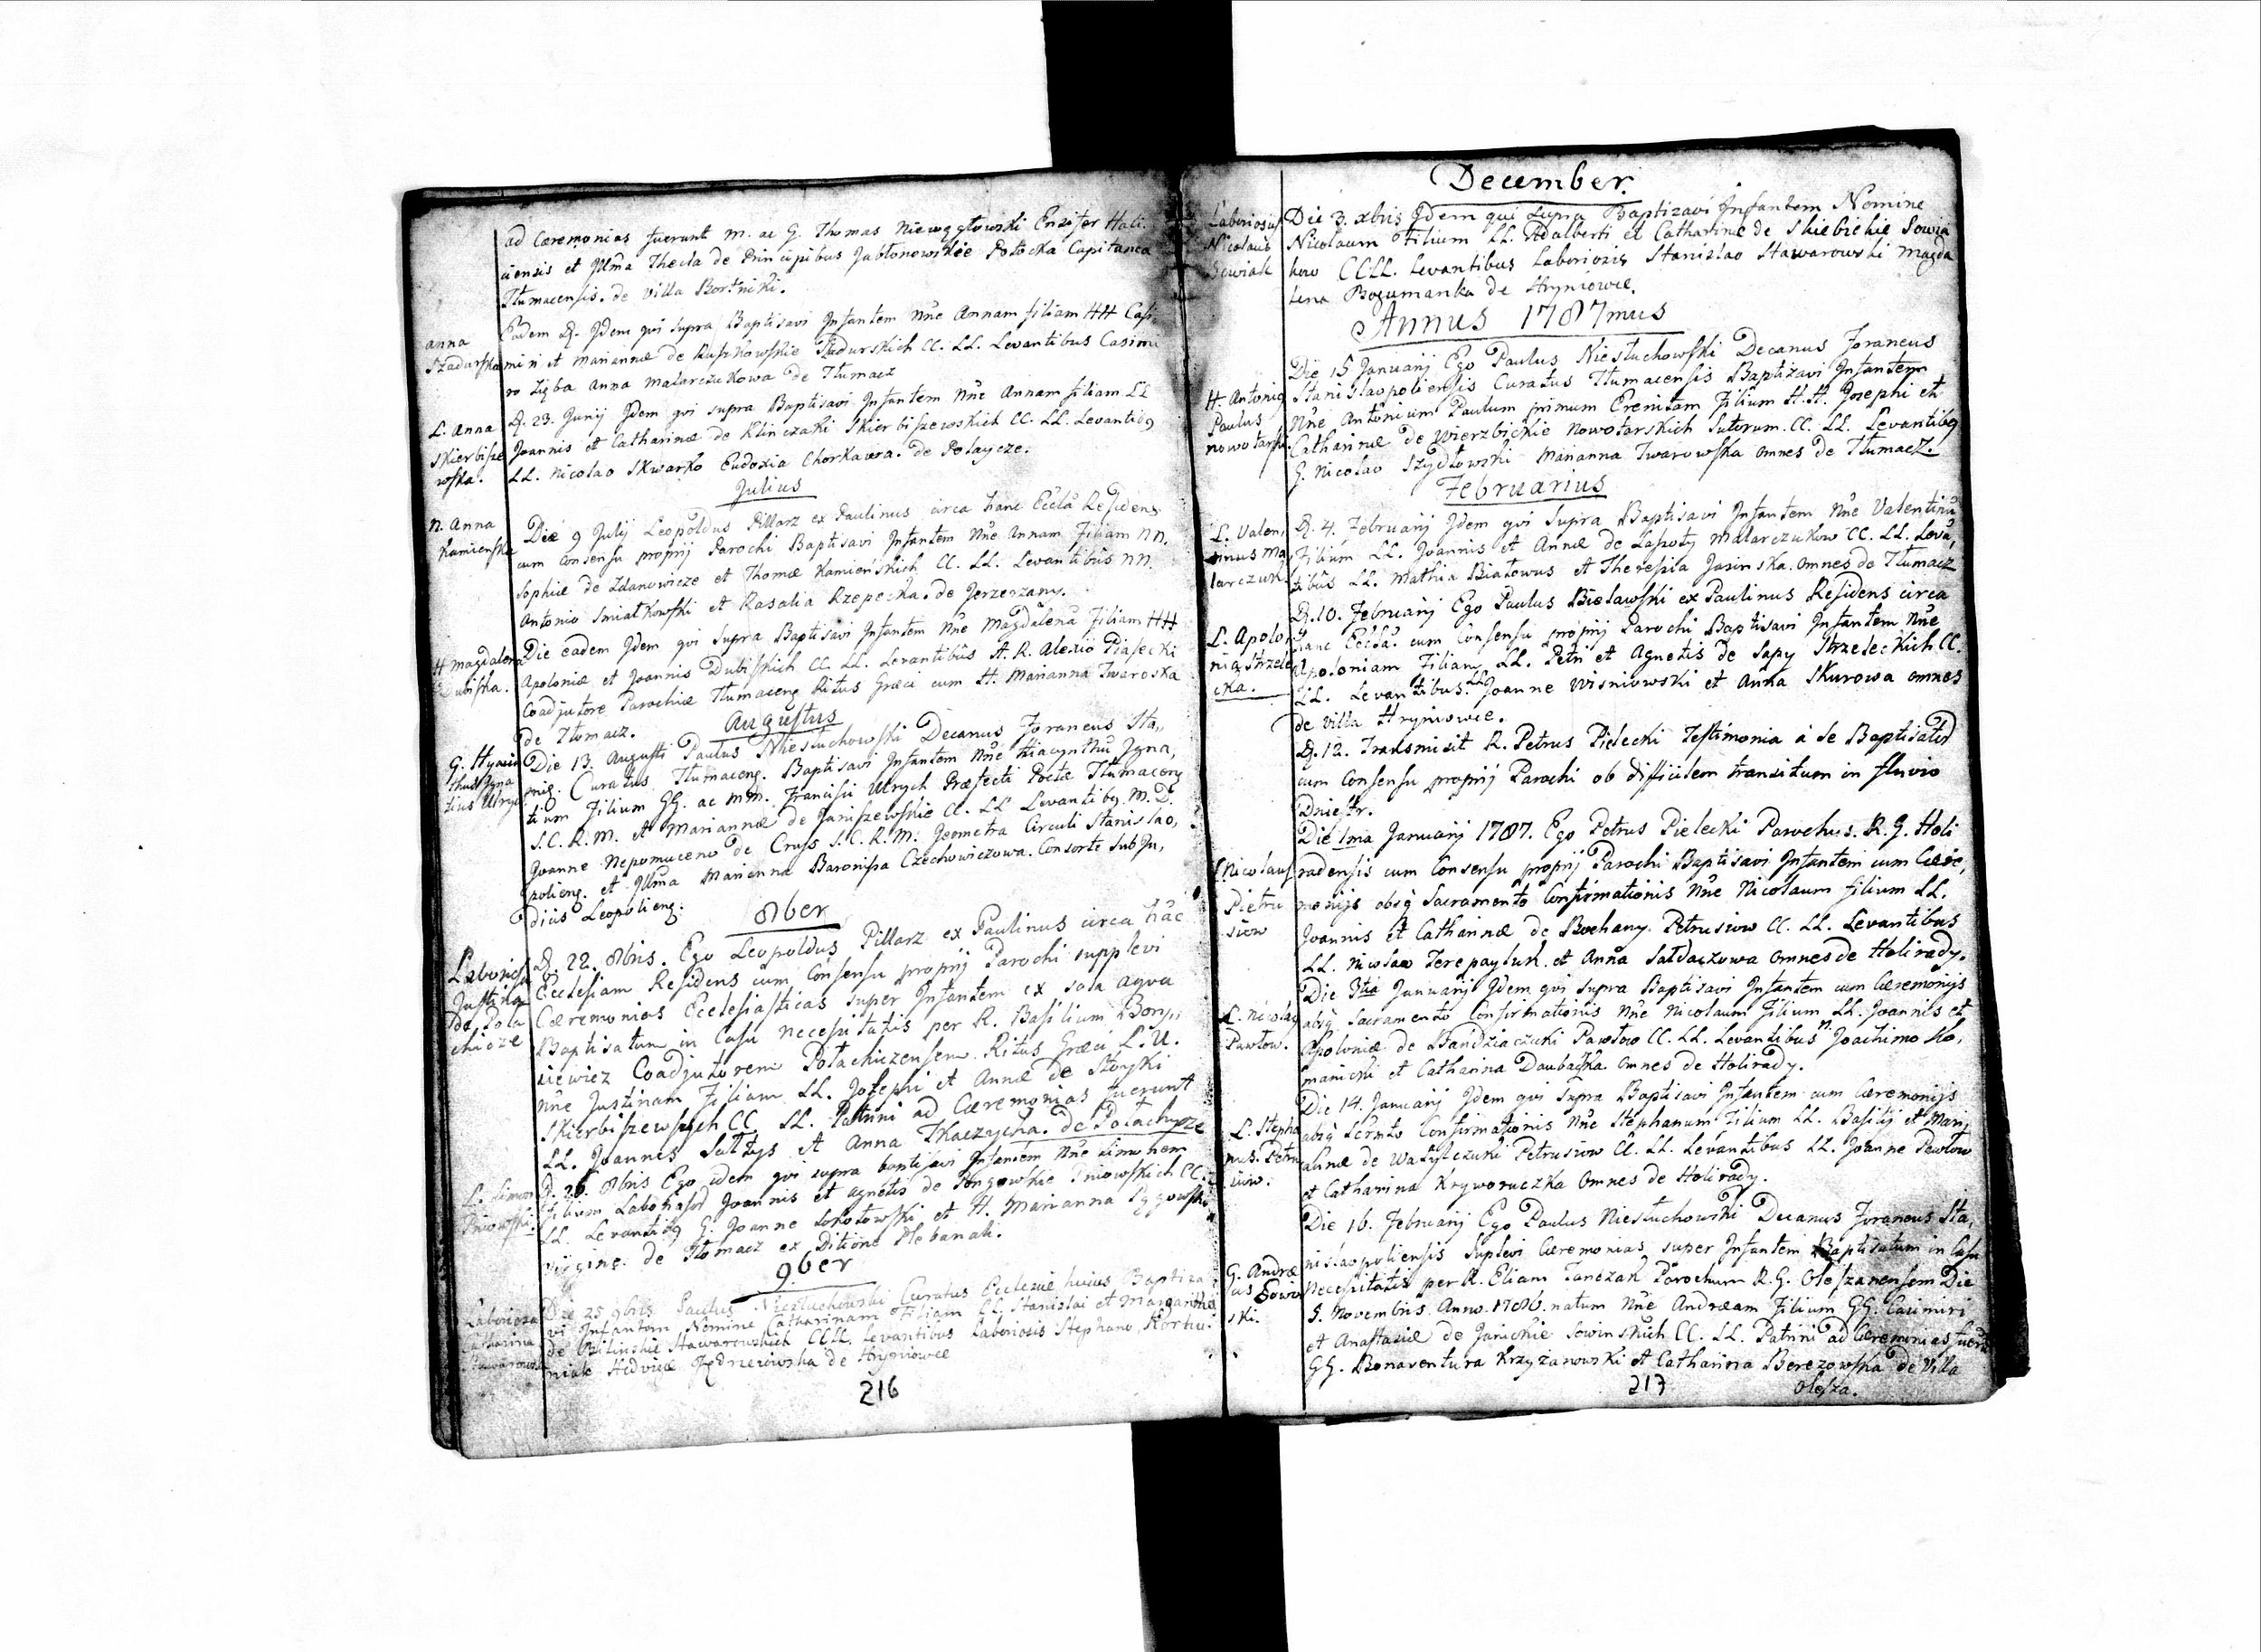 ad Cæremonias fuerunt M. ac G. Thomas Niewęgłowski Ensifer Hali,
ciensis et Jllma Thecla de Principibus Jabłonowskie Potocka Capitanea
Tłumacensis. de Villa Bortniki.
Anna
Szadurska
Eadem D. Jdem qui supra Baptisavi Infantem Nne Annam filiam HH Casi,
miri et Mariannæ de Ruszkowskie Szadurskich CC. LL. Levantibus Casimi
ro Zięba Anna Malarczukowa de Tłumacz
L. Anna
Skierbisze
wska.
D. 23. Junij Jdem qvi supra Baptisavi Infantem Nne Annam filiam LL
Joannis et Catharinæ de Klinczaki Skierbiszewskich CC. LL. Levantib9
LL. Nicolao Skwarko Eudoxia Chorkawa. de Polaycze.
Julius
N. Anna
Kamienska
Die 9 Julij Leopoldus Pillarz ex Paulinus circa hanc Eccla Residens
cum Consensu proprij Parochi Baptisavi Infantem Nne Annam Filiam NN.
Sophiæ de Zdanowicze et Thomæ Kamieńskich CC. LL. Levantibus NN.
Antonio Smiałkowski et Rasalia Rzepecka. de Jezerzany.
H Magdalena
Dubiska.
Die eadem Jdem qvi supra Baptisavi Infantem Nne Magdalena Filiam HH
Apoloniæ et Joannis Dubiskich CC. LL. Levantibus A. R. Alexio Piasecki
Coadjutore Parochiæ Tłumaceng Ritus Græci cum H. Marianna Twaroska
de Tłomacz.
Augustus
G. Hyacin
thus Igna
tius Ulrych
Die 13. Augusti Paulus Niesłuchowski Decanus Foraneus Sta,,
Curatus Tłumaceng. Baptisavi Infantem Nne Hiacynthu Jgna,
tium Filium GG. ac MM. Francisci Ulrych Præfecti Poctæ Tłumaceng
S.C.R.M. et Mariannæ de Janiszewskie CC. LL Levantib9. M. D.
Joanne Nepomuceno de Cruss S.C.R.M. Geometra Circuli Stanislao,
polieng. et Jllma Marianna Baronissa Czechowiczowa. Consorte SubJu,
dicis Leopolieng.
8ber
Laboriosa
Justina
de Pola
chicze
D. 22. 8bris. Ego Leopoldus Pillarz ex Paulinus circa hac
Ecclesiam Residens cum Consensu proprij Parochi supplevi
Cæremonias Ecclesiasticas super Infantem ex sola aqva
Baptisatam in Casu necessitatis per R. Basilium Borys,
siewicz Coadjutorem Potachiczensem Ritus Græci L.U.
Nne Justinam Filiam LL. Josephi et Annæ de Słoyki
Skierbiszewskych CC LL. Patrini ad Cæremonias fuerunt
LL. Joannes Sałtys et Anna Tkaczycha. de Potachycze
L. Simon
Pniowski.
D. 28. 8bris Ego idem qvi supra baptisavi Infantem Nne Simonem
Filium Laboriasor Joannis et Agnetis de Pniowskich CC.
LL. Levantib9 G. Joanne Sokołowski et H. Marianna
virgine. de Tłomacz ex Ditione Plebanali.
9ber
Laboriosa
Catharina
Stawarowska
Die 25 9bris Paulus Niesłuchowski Curatus Ecclesiæ huius Baptiza
vi Infantem Nomine Catharinam Filiam LL. Stanislai et Margarithæ
de Bilinskie Stawarowskich CCLL. Levantibus Laboriosis Stephano Korbu
niak Hedvige Jędrzeiowska de Hryniowce
216
December.
Laboriosus
Nicolaus
Sowiak
Die 3. xbris Jdem qui supra Baptizavi Infantem Nomine
Nicolaum Filium LL. Adalberti et Catharinæ de Skiebickie Sowia
kow CCLL. Levantibus Laboriosis Stanislao Stawarowski Magda
lena Bogumanka de Hryniowce.
Annus 1787mus
H. Antonig
Paulus
Nowotarski
Die 15 Januarij Ego Paulus Niesłuchowski Decanus Foraneus
Stanislaopoliensis Curatus Tłumacensis Baptizavi Infantem
Nne Antonium Paulum primum Eremitam Filium H.H. Josephi et
Catharinæ de Wierzbickie Nowotarskich Sutorum. CC. LL. Levantib9
G. Nicolao Szydłowski Marianna Twarowska omnes de Tłumacz.
Februarius
L. Valen,
tinus Ma
larczuk.
D. 4. Februarij Jdem qvi supra Baptisavi Infantem Nne Valentinu
Filium LL. Joannis et Annæ de Lapoty Malarczukow CC. LL. Leva,
tibus LL. Mathia Białowus et Theresia Jasinska. omnes de Tłumacz
L. Apolo
nia Strzele
cka.
D. 10. Februarij Ego Paulus Bielawski ex Paulinus Residens circa
hanc Eccla. cum Consensu proprij Parochi Baptisavi Infantem Nne
Apoloniam Filiam LL. Petri et Agnetis de Sapy Strzeleckich CC.
LL. Levantibus. LL Joanne Wisniowski et Anna Skurowa omnes
de villa Hryniowce.
D. 12. Transmisit R. Petrus Pielecki Testimonia a se Baptisator
cum Consensu proprij Parochi ob difficilem transitum in fluvio
Dniestr.
L. Nicolaus
Pietru
siow
Die 1ma Januarij 1787. Ego Petrus Pielecki Parochus. R. G. Holi
radensis cum Consensu proprij Parochi Baptisavi Infantem cum Cære,
monijs absq Sacramento Confirmationis Nne Nicolaum filium LL.
Joannis et Catharinæ de Bochany. Petrusiow CC. LL. Levantibus
LL. Nicolao Terepayluk. et Anna Saldaczowa omnes de Holirady.
L. Nicolag
Pawłow.
Die 3tia Januarij Jdem qvi supra Baptisavi Infantem cum Cæremonijs
absq Sacramento Confirmationis Nne Nicolaum Filium LL. Joannis et
Apoloniæ de Bandziaczuki Pawłow CC. LL. Levantibus N. Joachimo Ro,
manicki et Catharina Doubaczka omnes de Holirady.
L. Stepha
nus. Petru
siow.
Die 14. Januarij Jdem qvi supra Baptisavi Infantem cum Cæremonijs
absq Scrmto Confirmationis Nne Stephanum Filium LL. Basilij et Mari
annæ de Wasylczuki Petrusiow CC. LL. Levantibus LL. Joanne Pawłow
et Catharina Kryworuczka omnes de Holirady.
G. Andræ
as Sowin
ski.
Die 16. Februarij Ego Paulus Niesłuchowski Decanus Foraneus Sta,
nislaopoliensis Suplevi Cæremonias super Infantem Baptisatum in Casu
Necessitatis per R. Eliam Tanczak Parochum R. G. Oleszanensem Die
5. Novembris Anno. 1786. natum Nne Andræam Filium GG. Casimiri
et Anastasiæ de Janickie Sowinskich CC. LL. Patrini ad Cæremonias fuerut
GG. Bonaventura Krzyżanowski et Catharina Berezowska de Villa
Olesza.
217